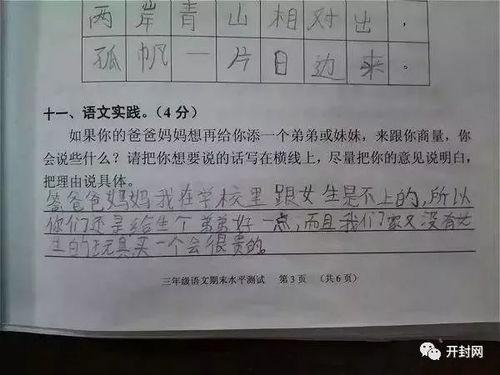 两岸青山相对出，
孤帆一片日边来。
十一、语文实践。（4分）
如果你的爸爸妈妈想再给你添一个弟弟或妹妹，来跟你商量，你
会说些什么？请把你想要说的话写在横线上，尽量把你的意见说明白，
把理由说具体。
答爸爸妈妈我在学校里跟女生是不上的，所以
你们还是给生个弟弟好一点，而且我们家又没有女
生的玩具买一个会很贵的。
三年级语文期末水平测试 第3页 （共6页）
开封网